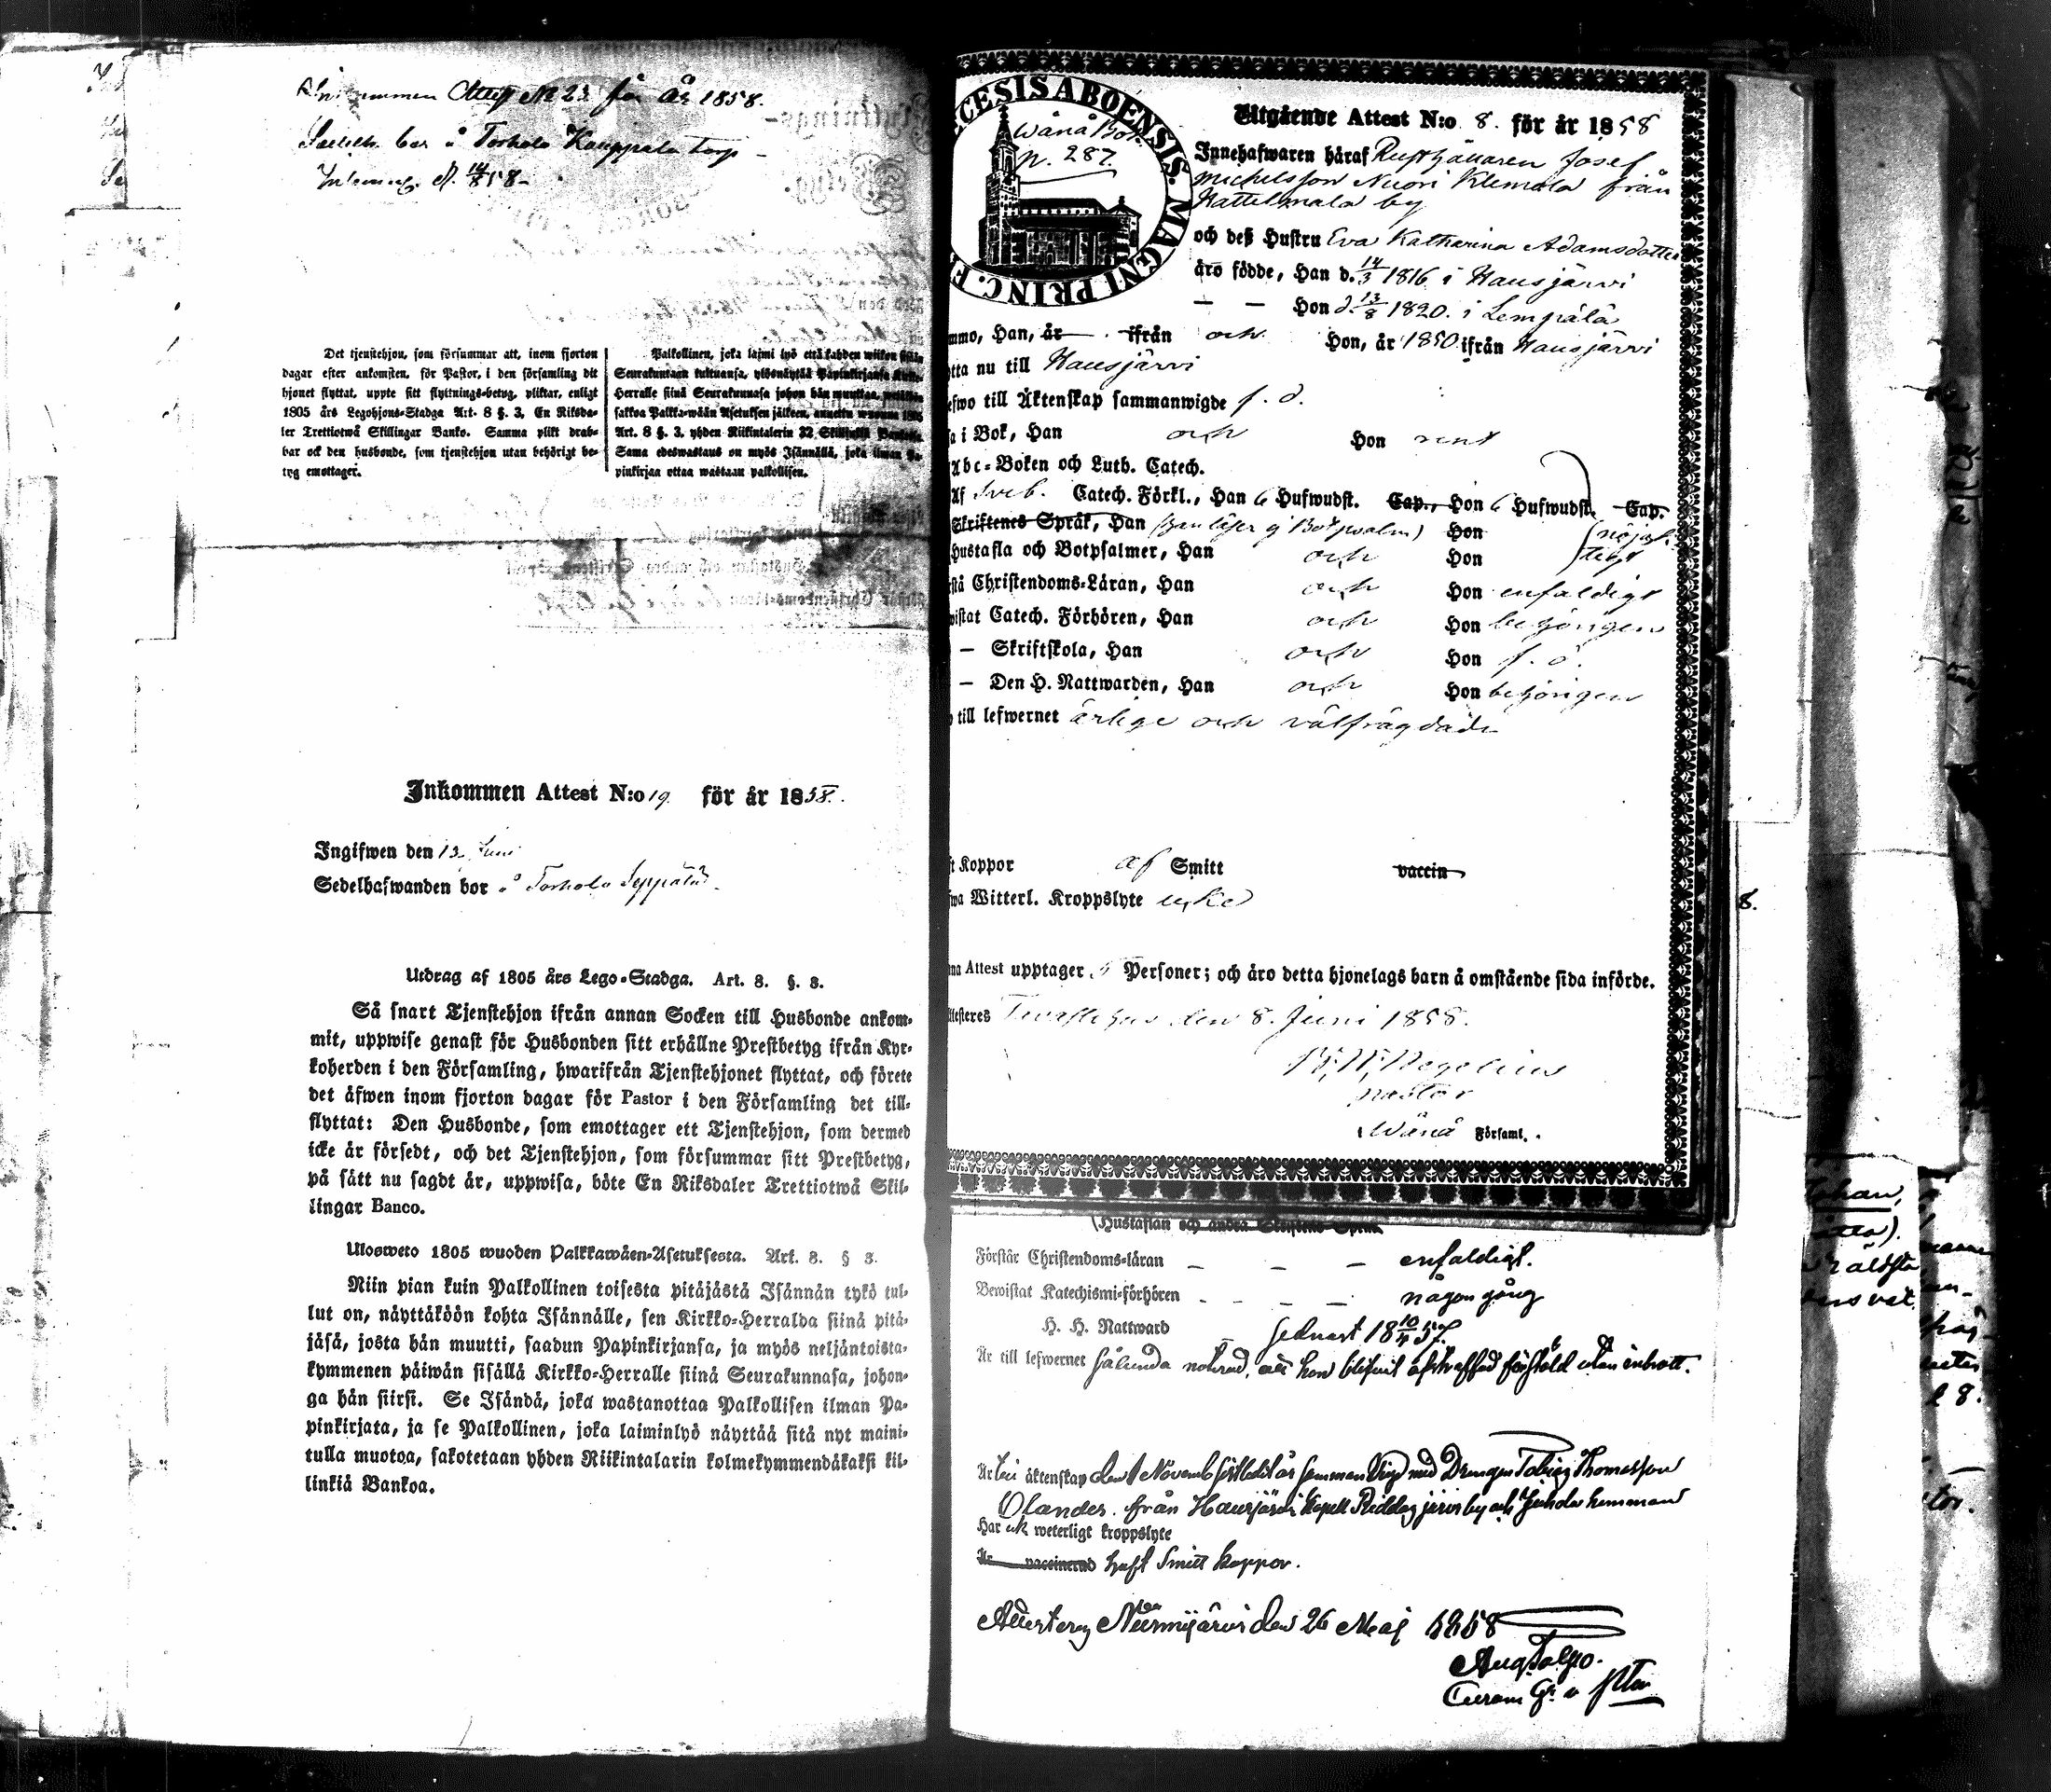 Inkommen Attest N 23 för År 1858.
Sedelh. bor å Torhola Kauppala torp
d. 14/8 58
Det tjenstehjon, som försummar att, inom fjorton
dagar efter ankomsten, för Pastor, i den församling dit
hjonet flyttat, uppte sitt flyttnings-betyg, pliktar, enligt
1805 års Legohjons-Stadga Art. 8 §. 3, En Riksda-
ler Trettiotwå Skillingar Banko. Samma plikt drab-
bar ock den husbonde, som tjenstehjon utan behörigt be-
tyg emottager.
Palkollinen, joka laimi lyö että kahden wiikon sisään
Seurakuntaan tultuansa, ylösnäytää Papinkirjansa
Herralle siinä Seurakunnasa johon hän muuttaa,
sakkoa Palkka-wään Asetuksen jälkeen, annettu wuonna 1805
Art. 8 §. 3, yhden Riikintalerin 32 Skillinkiä
Sama edeswastaus on myös Isännällä, joka ilman Pa-
pinkirjaa ottaa wastaan palkollisen.
Inkommen Attest N:o 19. för år 1858.
Ingifwen den 12 Juni
Sedelhafwanden bor å Torhola Seppälä
Utdrag af 1805 års Lego-Stadga. Art. 8. §. 3.
Så snart Tjenstehjon ifrån annan Socken till Husbonde ankom-
mit, uppwise genast för Husbonden sitt erhållne Prestbetyg ifrån Kyr-
koherden i den Församling, hwarifrån Tjenstehjonet flyttat, och förete
det äfwen inom fjorton dagar för Pastor i den Församling det till-
flyttat: Den Husbonde, som emottager ett Tjenstehjon, som dermed
icke är försedt, och det Tjenstehjon, som försummar sitt Prestbetyg,
på sätt nu sagdt är, uppwisa, böte En Riksdaler Trettiotwå Skil-
lingar Banco.
Ulosweto 1805 wuoden Palkkawäen-Asetuksesta. Art. 8. § 3.
Niin pian kuin Palkollinen toisesta pitäjästä Isännän tykö tul-
lut on, näyttäköön kohta Isännälle, sen Kirkko-Herralda siinä pitä-
jäsä, josta hän muutti, saadun Papinkirjansa, ja myös neljäntoista-
kymmenen päiwän sisällä Kirkko-Herralle siinä Seurakunnasa, johon-
ga hän siirsi. Se Isändä, joka wastanottaa Palkollisen ilman Pa-
pinkirjata, ja se Palkollinen, joka laiminlyö näyttää sitä nyt maini-
tulla muotoa, sakotetaan yhden Riikintalarin kolmekymmendäkaksi kil-
linkiä Bankoa.
CESIS ABOENSIS. MAGNI PRINC. F
Wånå Bok.
N. 287.
Utgående Attest N:o 8. för år 1858
Innehafwaren häraf Rusthållaren Josef
Michelsson Nuori Klemola från
Kattelmala by
och deß Hustru Eva Katharina Adamsdotter
äro födde, Han d. 14/3 1816 i Hausjärvi
— — Hon d. 13/8 1820. i Lempälä
mmo, Han, år ifrån och Hon, år 1850 ifrån Hausjärvi
tta nu till Hausjärvi
efwo till Äktenskap sammanwigde f. d.
a i Bok, Han och Hon rent
Abc-Boken och Luth. Catech.
Af Sveb. Catech. Förkl., Han 6 Hufwudst. Cap., Hon 6 Hufwudst. Cap.
Skriftenes Språk, Han (han läser ej Botpsalm) Hon nöjak-
Hustafla och Botpsalmer, Han och Hon tigt
rstå Christendoms-Läran, Han och Hon enfaldigt
wistat Catech. Förhören, Han och Hon behörigen
— Skriftskola, Han och Hon f. d.
— Den H. Nattwarden, Han och Hon behörigen
till lefwernet ärlige och välfrägdade
ft Koppor af Smitt vaccin
fwa Witterl. Kroppslyte icke
na Attest upptager 5 Personer; och äro detta hjonelags barn å omstående sida införde.
Tavastehus den 8. Juni 1858.
pastor
Wånå Församl.
8.
(Hustaflan och andra Skriftens Språk
Förstår Christendoms-läran — — — enfaldigt.
Bewistat Katechismi-förhören — — — — någon gång
H. H. Nattward sednast 18 10/4 57.
Är till lefwernet sålunda noterad, att hon blifvit afstraffad för stöld utan inbrott.
Är till äktenskap den 1 Novemb. sistledit år sammanvigd med Drängen Tobias Thomasson
Olander från Hausjärvi Kapell Riddasjärvi by och Juhola hemman
Har ick weterligt kroppslyte
Är vaccinerad haft Smitt koppor.
Attesteras Nurmijärvi den 26 Maj 1858